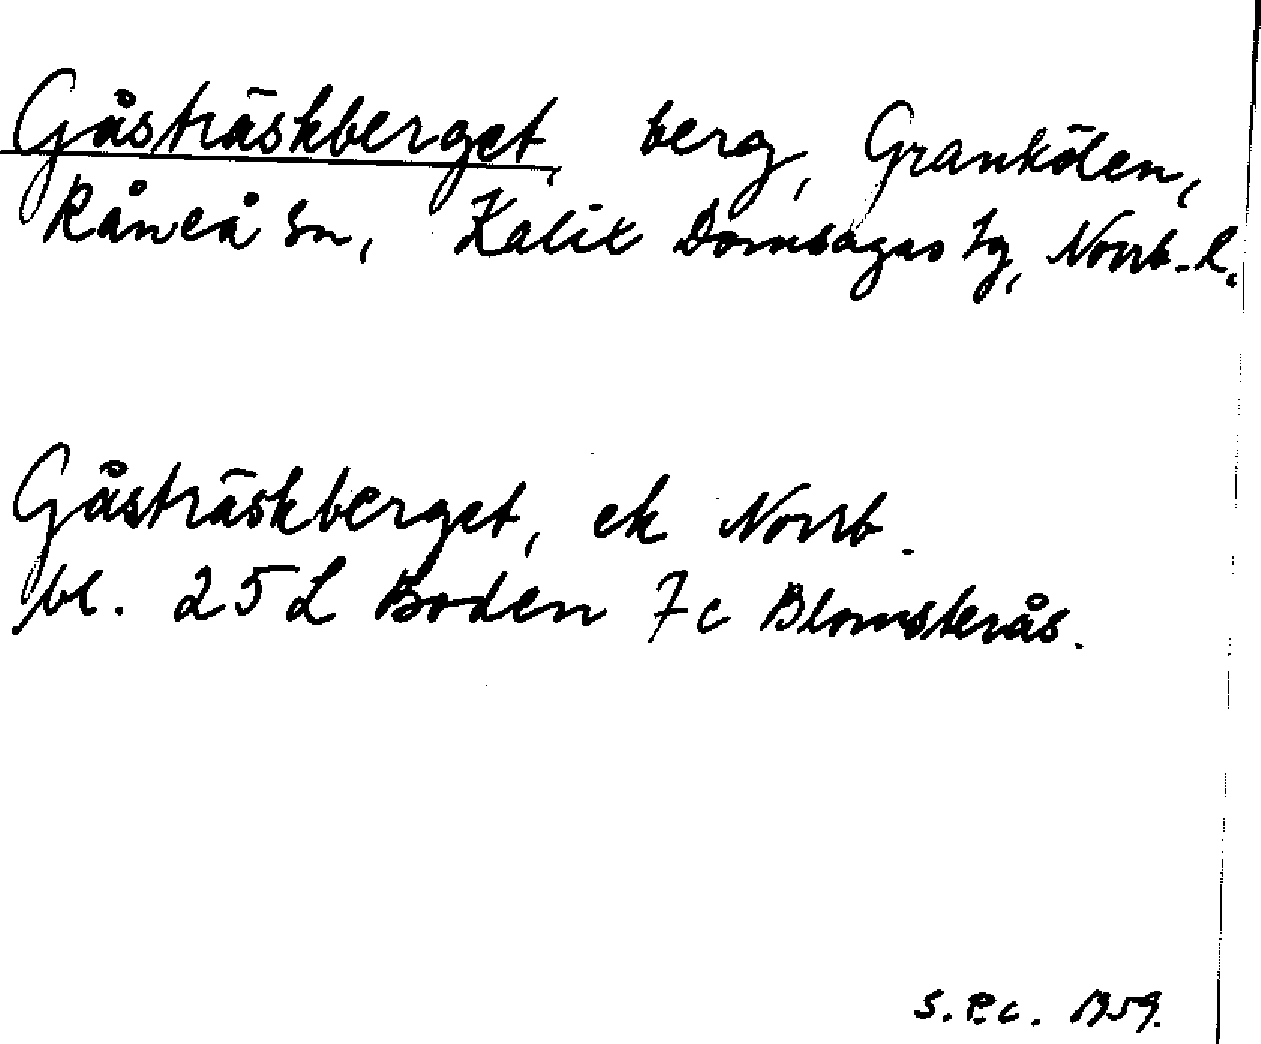 Gåsträskberget, berg, Grankölen,
Råneå sn, Kalix Domsagas tg, Norrb. l.
Gåsträskberget, ek Norrb.
bl. 25 L Boden 7c Blomsterås.
S. P.c. 1959.